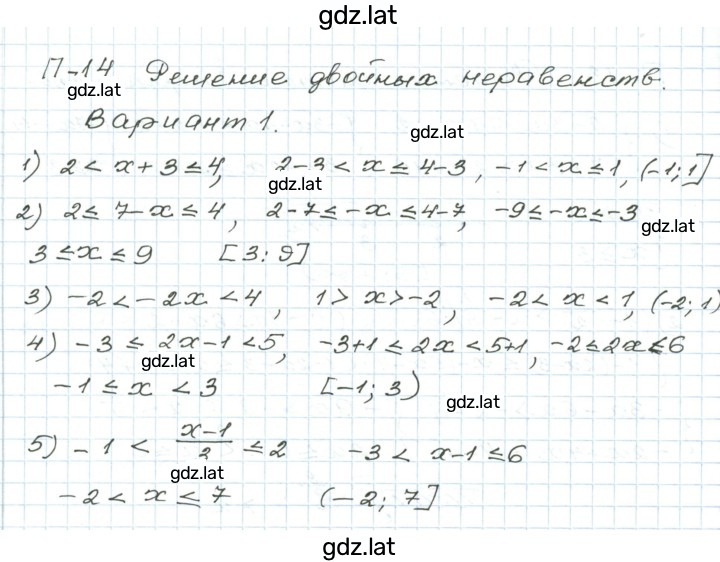 gdz.lat
П-14 Решение двойных неравенств.
gdz.lat
Вариант 1.
gdz.lat
1) 2 < x + 3 ≤ 4, 2-3 < x ≤ 4-3, -1 < x ≤ 1, (-1; 1]
gdz.lat
2) 2 ≤ 7-x ≤ 4, 2-7 ≤ -x ≤ 4-7, -9 ≤ -x ≤ -3
gdz.lat
3 ≤ x ≤ 9 [3; 9]
3) -2 < -2x < 4, 1 > x > -2, -2 < x < 1, (-2; 1)
4) -3 ≤ 2x-1 < 5, -3+1 ≤ 2x < 5+1, -2 ≤ 2x ≤ 6
gdz.lat
-1 ≤ x < 3 [-1; 3)
gdz.lat
5) -1 < (x-1)/3 ≤ 2 -3 < x-1 ≤ 6
gdz.lat
-2 < x ≤ 7 (-2; 7]
gdz.lat